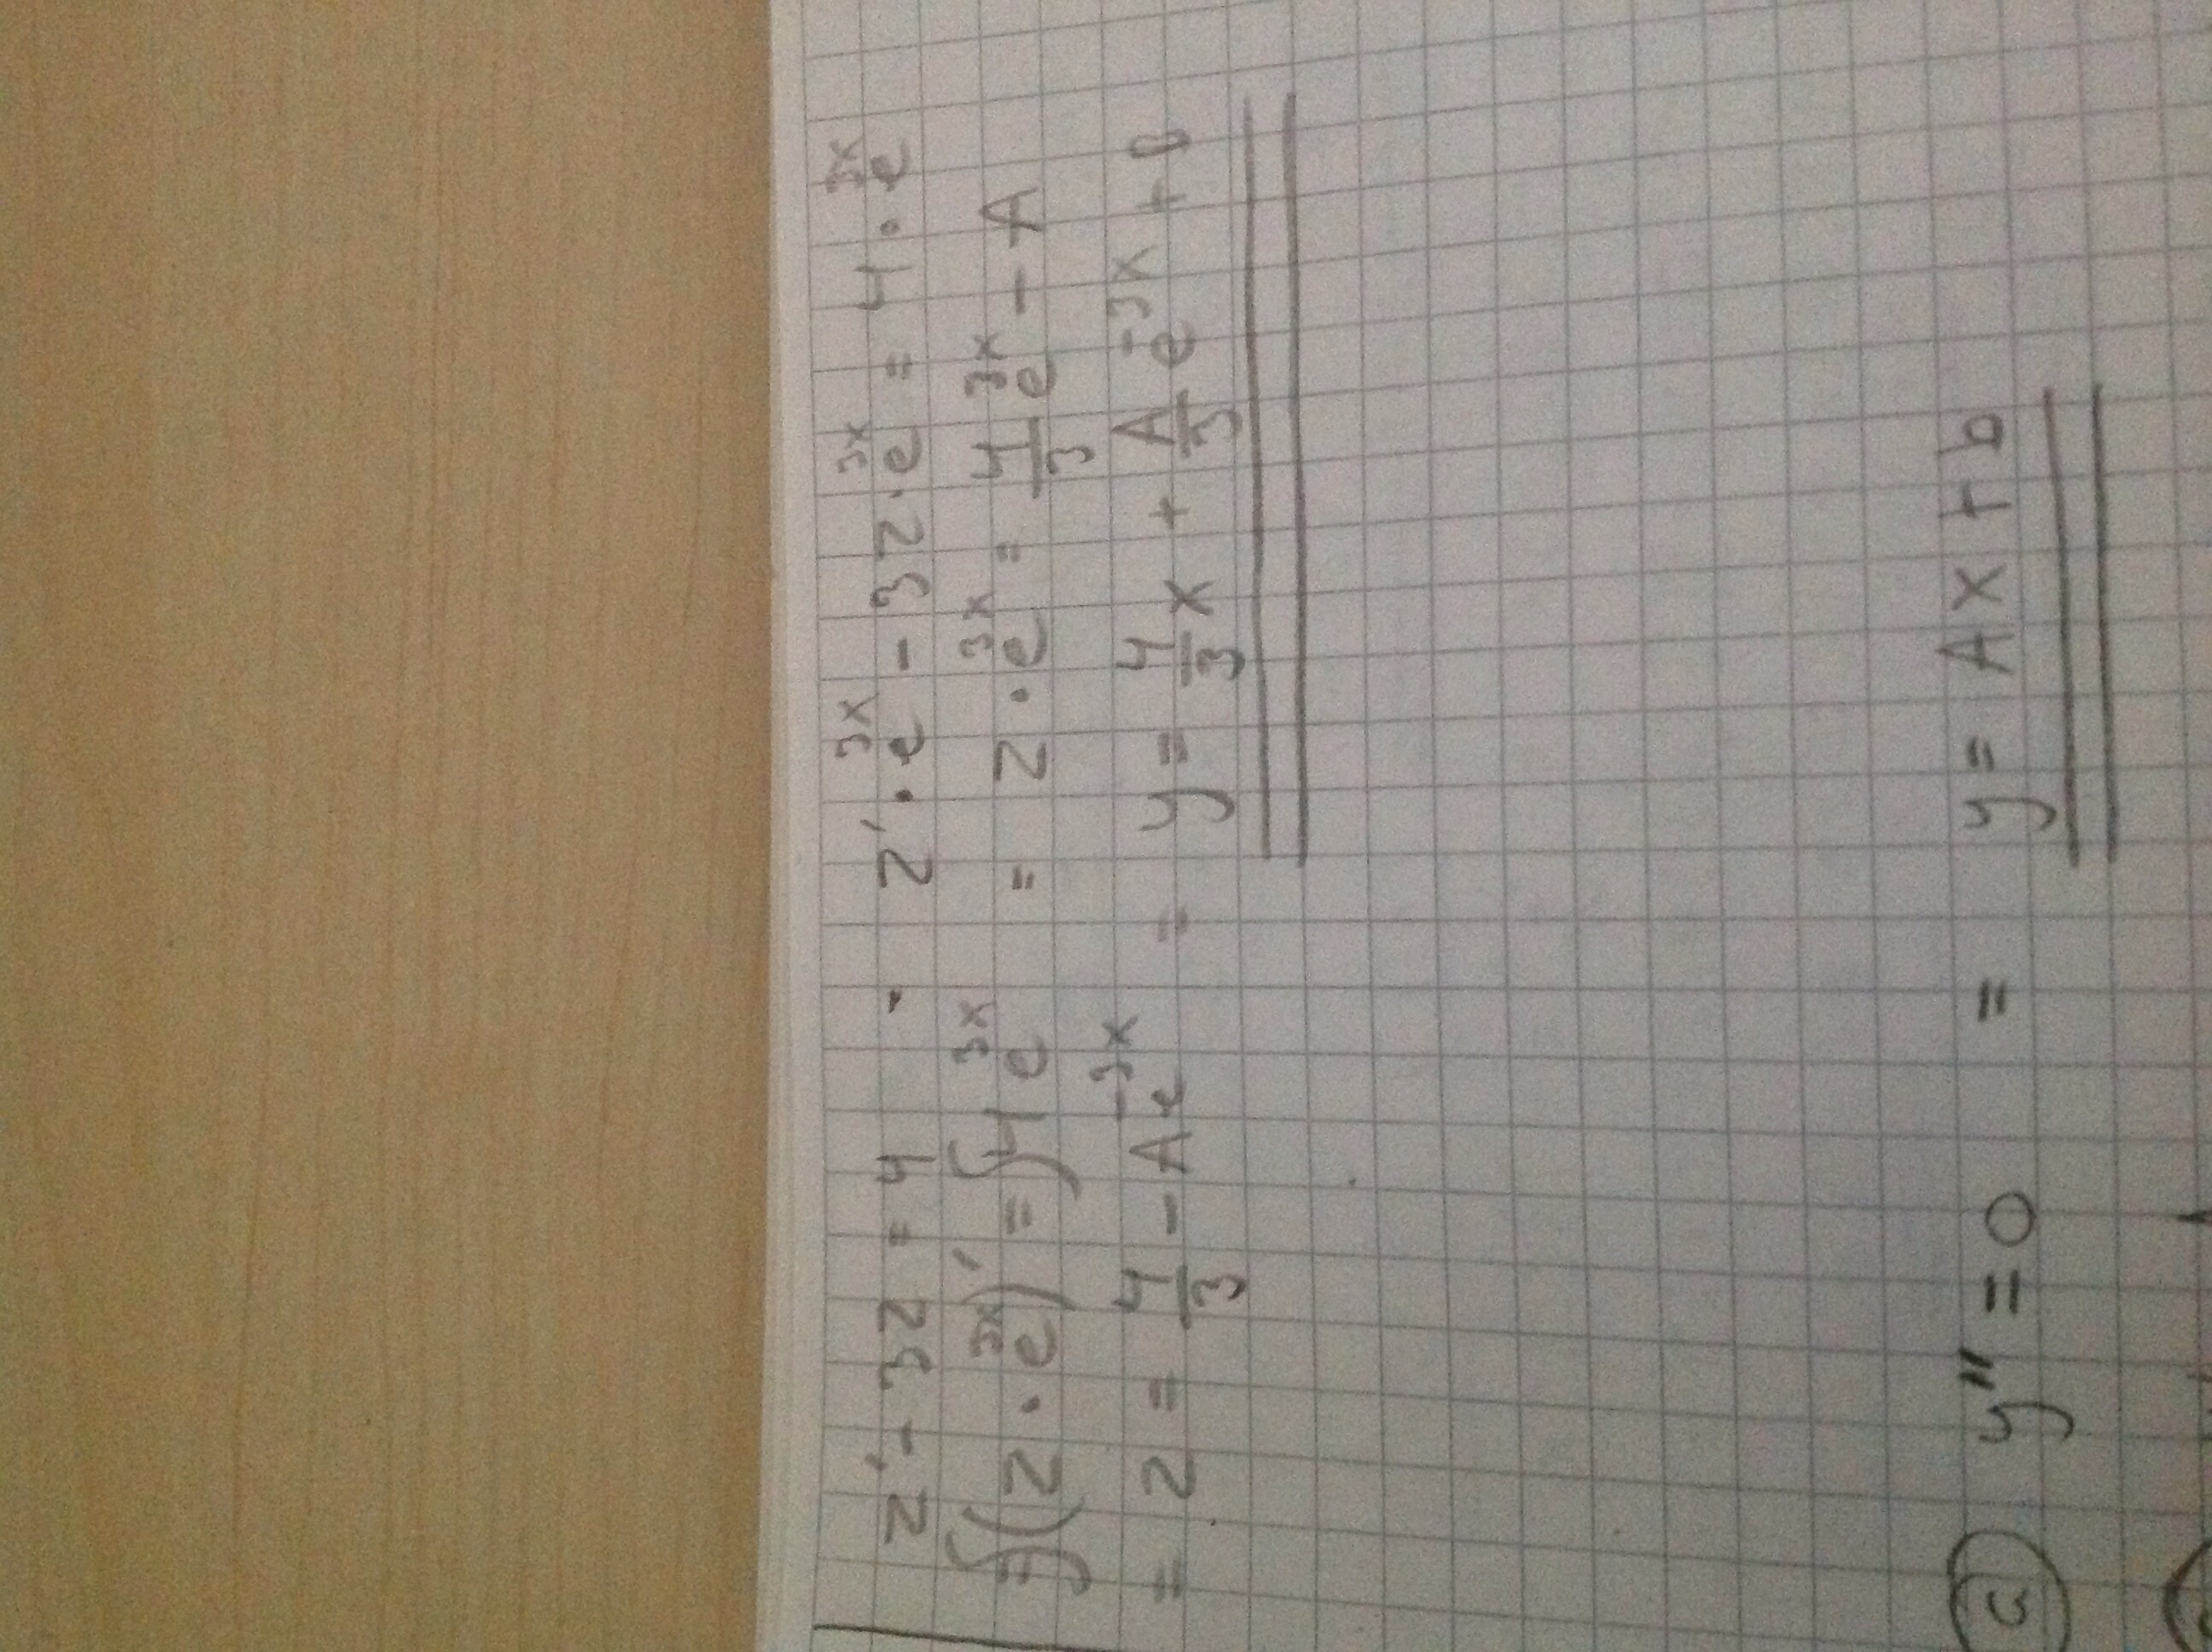 z' - 3z = 4 z' · e^3x - 3z · e^3x = 4 · e^3x
= ∫(z · e^3x)' = ∫4e^3x = z · e^3x = 4/3 e^3x - A
= z = 4/3 - Ae^-3x = y = 4/3 x + A/3 e^-3x +
c y'' = 0 = y = Ax + b